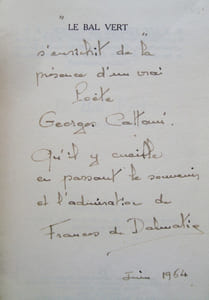 "LE BAL VERT"
s'enrichit de la
présence d'un vrai
Poète
Georges Cattaui.
Qu'il y cueille
en passant le souvenir
et l'admiration de
Frances de Dalmatie
Juin 1964